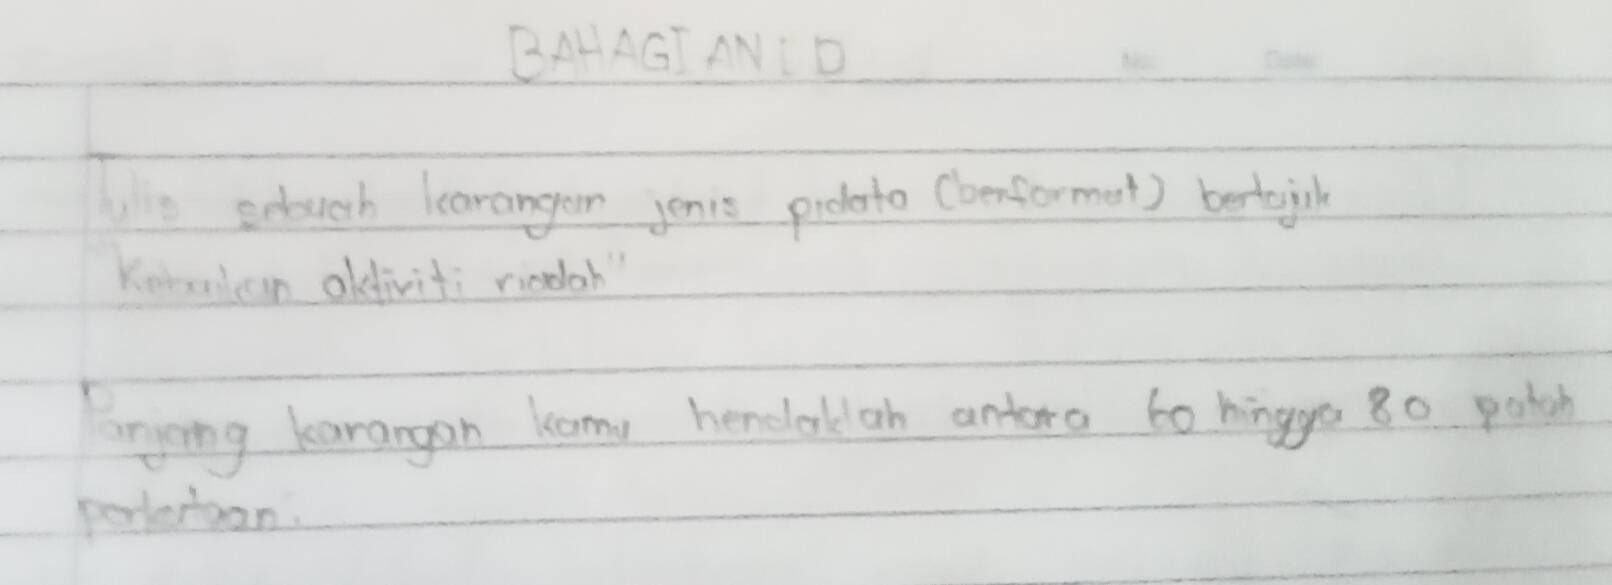 BAHAGIAN : D
No: Date:
Tulis sebuah karangan jenis pidato (berformat) bertajuk
aktiviti riadah"
Panjang karangan kamu hendaklah antara 60 hingga 80 patah
perkataan.